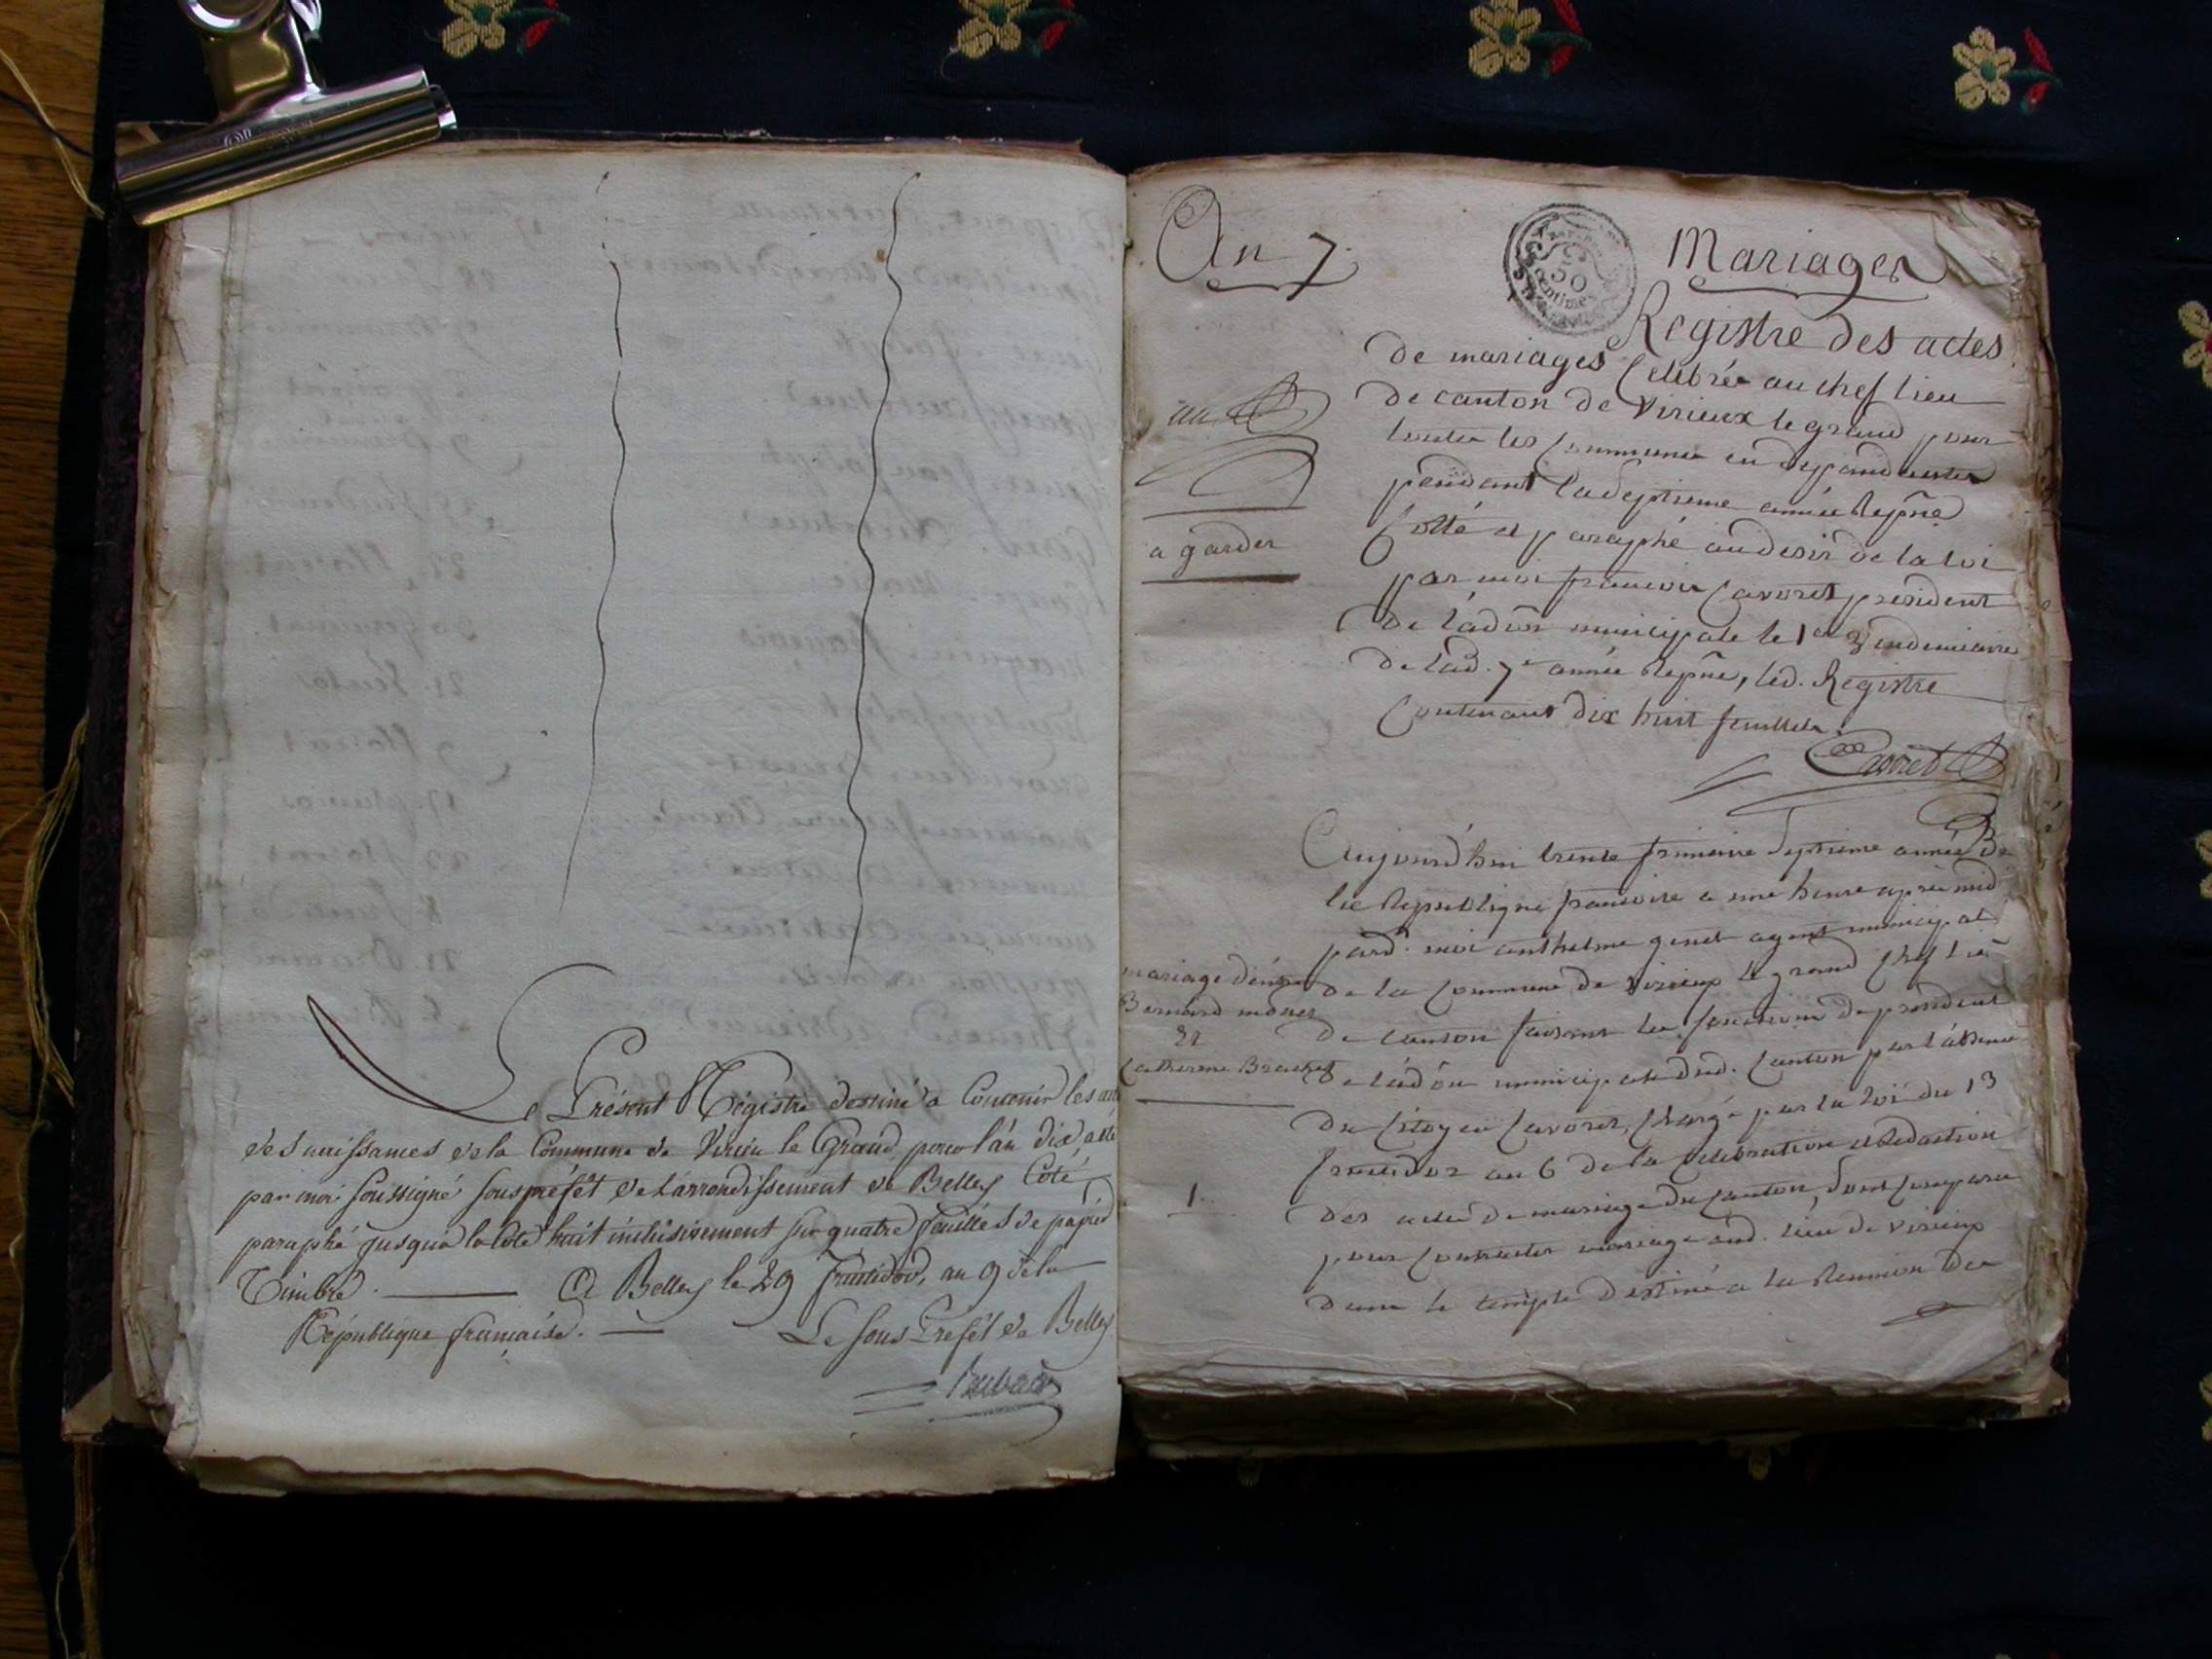 Le Présent Régistre destiné a Contenir les actes
des naissances de la Commune de Virieu le Grand, pour l'an dix, a été
par moi soussigné souspréfét de l'arrondissement de Belley Coté,
paraphé jusqu'a la Côte huit inclusivement sur quatre feuilles de papier
Timbré. A Belley le 29 fructidor, an 9 de la
République française. Le sous Préfét de Belley
An 7.
50
Centimes
Mariages
Registre des actes
de mariages Celebrés au chef lieu
de canton de Virieux le grand pour
toutes les Communes en dependantes
pendant la septieme année Repne
Cotté et paraphé au desir de la loi
par moi francois Cavoret president
de l'adon municipale le 1er Vendemiaire
de lad. 7e année Repne, led. Registre
Contenant dix huit feuillets.
Cavoret
a garder
Aujourd'hui trente frimaire septieme année De
la Republique francoise a une heure après midi
pard. moi anthelme genet agent municipal
de la Commune de Virieux le grand chef lieu
de canton faisant les fonctions de president
de l'adon municipale dud. Canton par l'absence
du Citoyen Cavoret, chargé par la loi du 13
fructidor an 6 de la Celebration et Redaction
des actes de mariage du Canton, sont comparu
pour Contracter mariage aud. lieu de Virieux
dans le temple destiné a la Reunion des
mariage d'entre
Bernard
Et
Catherine Brachet
1.